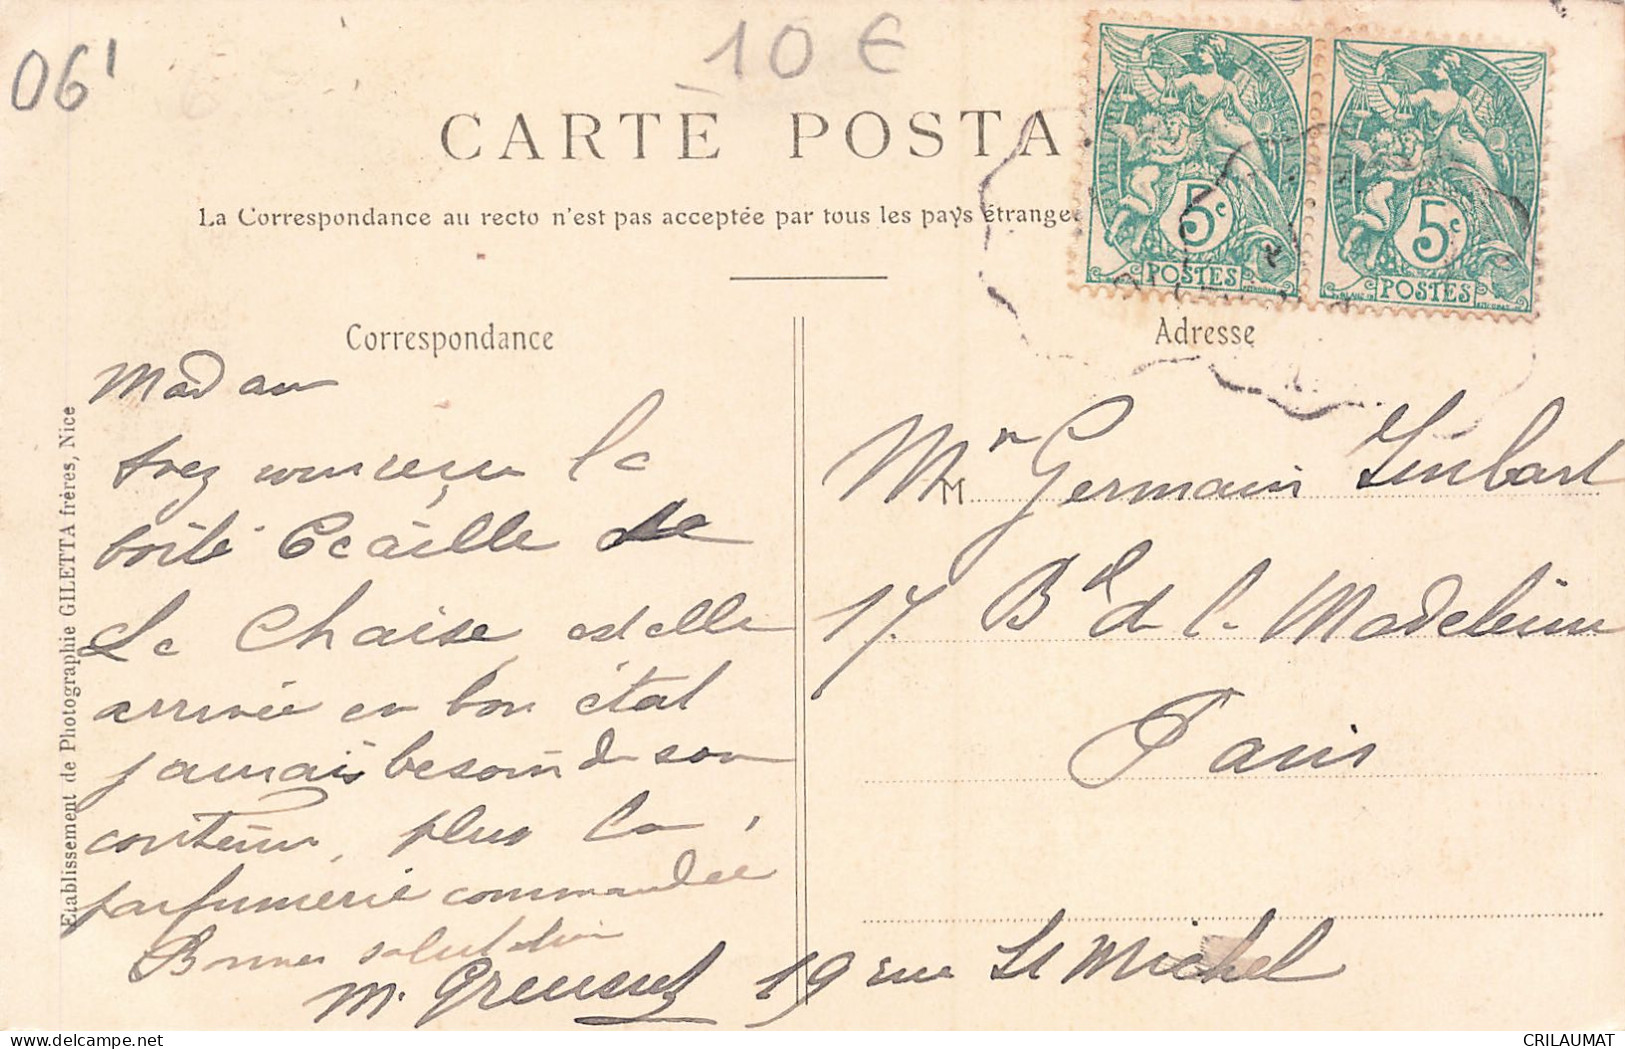 06'
10 €
CARTE POSTA
La Correspondance au recto n'est pas acceptée par tous les pays étrange
5c
POSTES
5c
POSTES
Correspondance
Adresse
Madam
la
boite Ecaille de
La Chaise, est elle
arrivée en bon état
jamais besoin de son
plus la
parfumerie commandée
Bonnes
M.
Mr Germain
M
17 Bd de la Madeleine
Paris
19 rue St Michel
Etablissement de Photographie GILETTA frères, Nice
CRILAUMAT